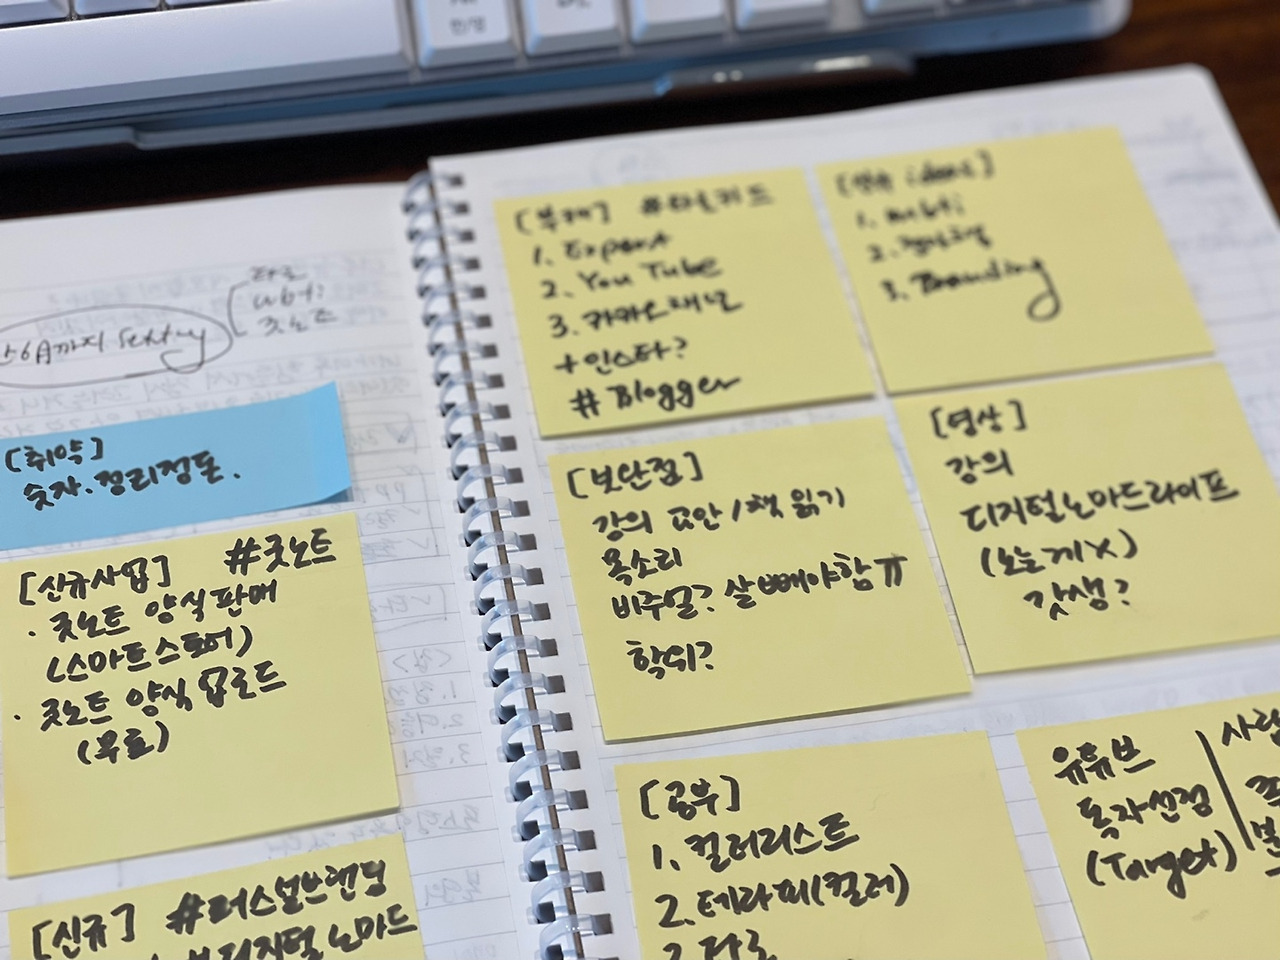 타로
mbti
굿노트
까지 Setting
[취약]
숫자.정리정돈.
[신규사업] #굿노트
· 굿노트 양식 판매
(스마트스토어)
· 굿노트 양식 업로드
(무료)
[신규] #퍼스널브랜딩
#디지털노마드
[부캐] #타로카드
1. Expert
2. You Tube
3. 카카오채널
+인스타?
# Blogger
[신규 ideas]
1. mbti
2. 컬러
3. Branding
[보완점]
강의 교안 / 책 읽기
목소리
비주얼? 살 빼야함 ㅠ
학위?
[영상]
강의
디지털노마드라이프
(노는게X)
갓생?
[공부]
1. 컬러리스트
2. 테라피(컬러)
3. 타로
유튜브
독자선점
(Target)
사람